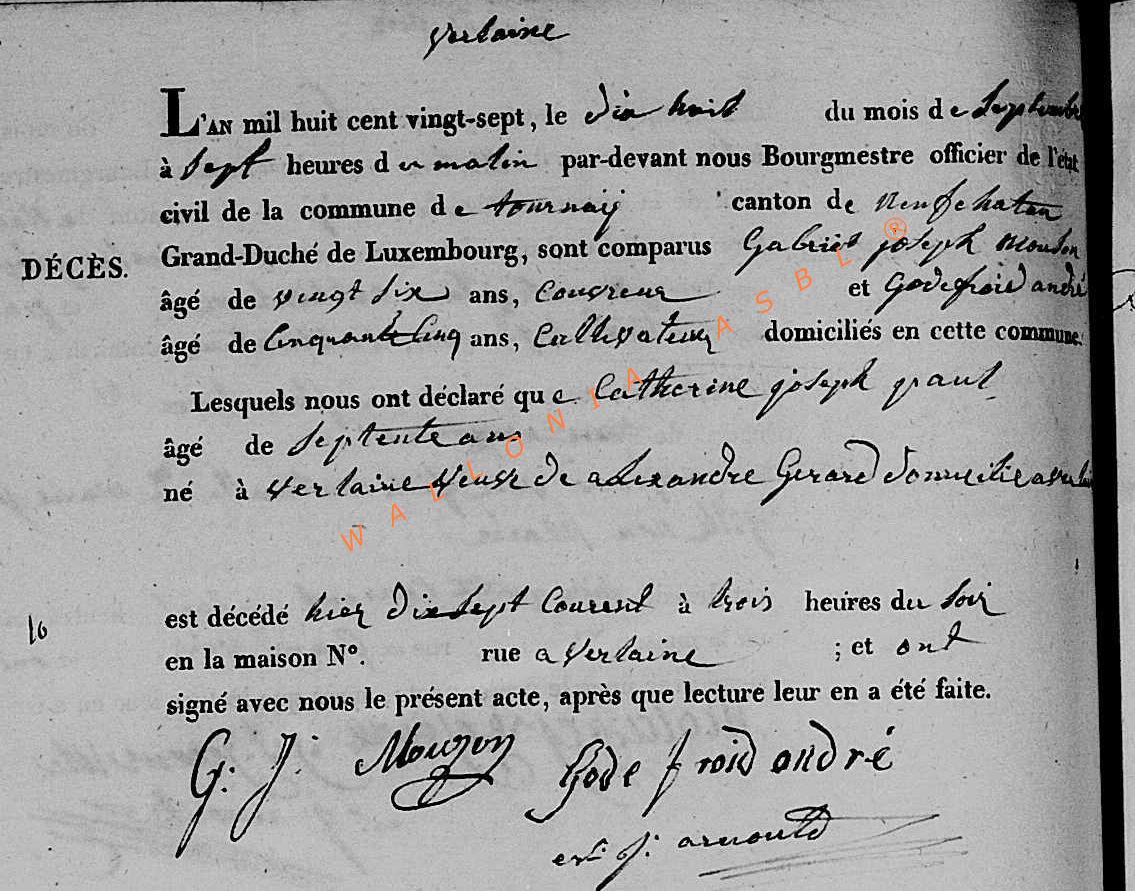 Verlaine
L'AN mil huit cent vingt-sept, le dix huit du mois de Septembre
à Sept heures du matin par-devant nous Bourgmestre officier de l'état
civil de la commune de tournay canton de neufchateau
DÉCÈS.
Grand-Duché de Luxembourg, sont comparus Gabriel joseph Mouson
âgé de vingt Six ans, Couvreur et Godefroid andré
âgé de Cinquante Cinq ans, Cultivateur domiciliés en cette commune.
Lesquels nous ont déclaré que Catherine joseph
âgé de Septente ans
né à Verlaine Veuve de alexandre Gerard domicilie a
est décédé hier dix Sept Courent à trois heures du Soir
10
en la maison N°. rue a Verlaine ; et ont
signé avec nous le présent acte, après que lecture leur en a été faite.
G: J: Mouzon Gode froid andré
J: arnould
WALLONIA ASBL ®